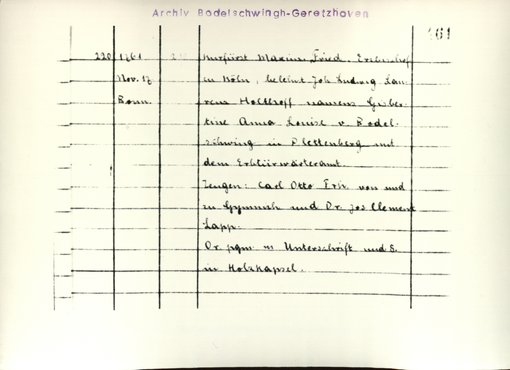 Archiv Bodelschwingh-Geretzhoven
161
220 1761 Kurfürst Maxim. Fried. Erzbischof
Nov. 17 in Köln, belehnt Joh Ludwig Lau-
Bonn. renz Holthoff namens
Anna Louise v. Bodel-
schwing in Plettenberg mit
dem Erbtürwärteramt
Zeugen: Carl Otto Frh. von und
zu Gymnich und Dr. Jos Clement
Lapp.
Or. pgm. m Unterschrift und S.
in Holzkapsel.